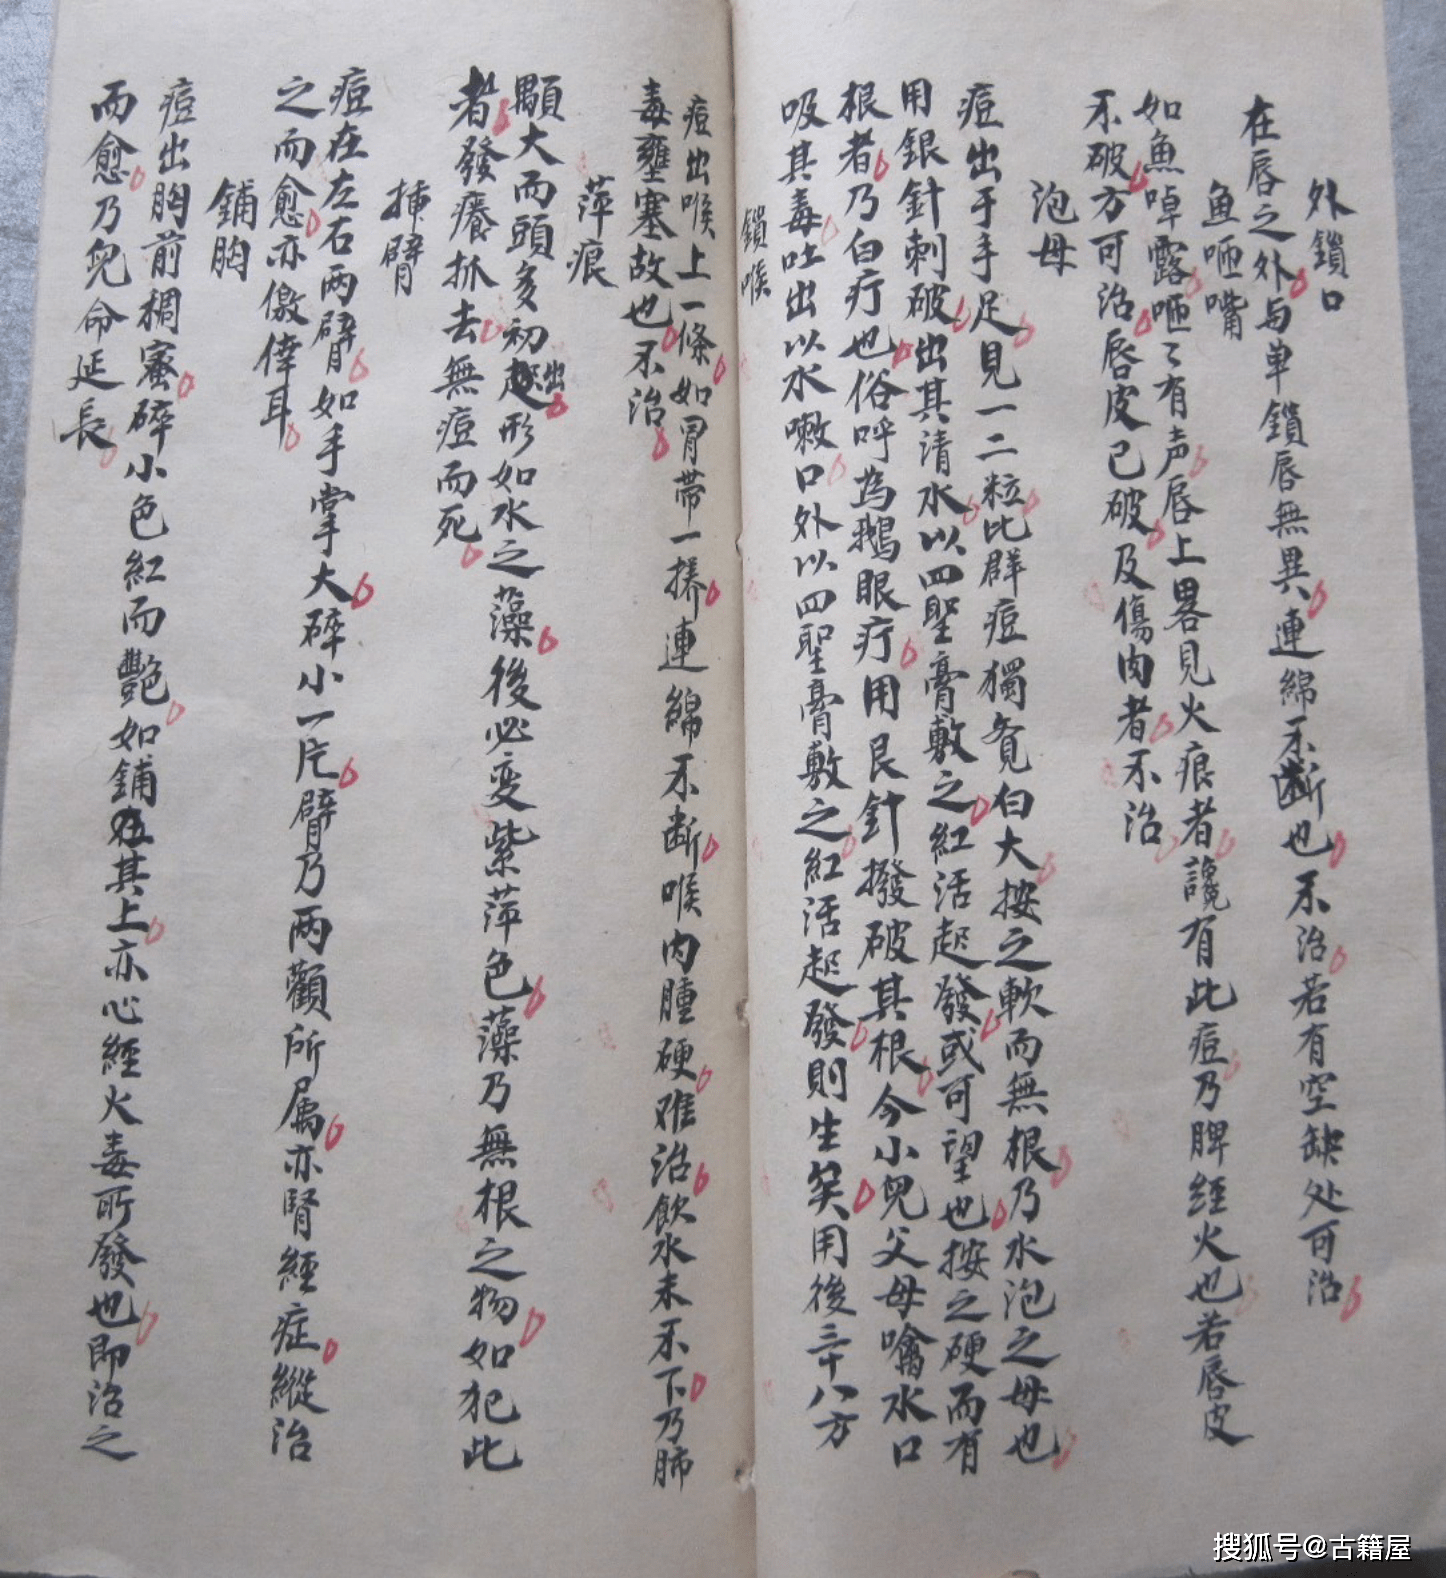 外鎖口
在唇之外与单鎖唇無異連綿不断也不治若有空缺处可治
魚咂嘴
如魚啅露咂〻有声唇上畧見火痕者讒有此痘乃脾經火也若唇皮
不破方可治唇皮已破及傷肉者不治
泡母
痘出于手足見一二粒比群痘獨覓白大按之軟而無根乃水泡之母也
用銀針刺破出其清水以四聖膏敷之紅活起發或可望也按之硬而有
根者乃白疔也俗呼為鵝眼疔用艮針撥破其根令小兒父母噙水口
吸其毒吐出以水嗽口外以四聖膏敷之紅活起發則生矣用後三十八方
鎖喉
痘出喉上一條如冐帶一搽連綿不断喉内腫硬难治飲水末不下乃肺
毒壅塞故也不治
萍痕
顆大而頭多初出形如水之藻後必变紫萍色藻乃無根之物如犯此
者發癢抓去無痘而死
揷臂
痘在左右两臂如手掌大碎小一片臂乃两顴所属亦腎經症縱治
之而愈亦儌倖耳
鋪胸
痘出胸前稠蜜碎小色紅而艷如鋪在其上亦心經火毒所發也即治之
而愈乃兒命延長
搜狐号@古籍屋